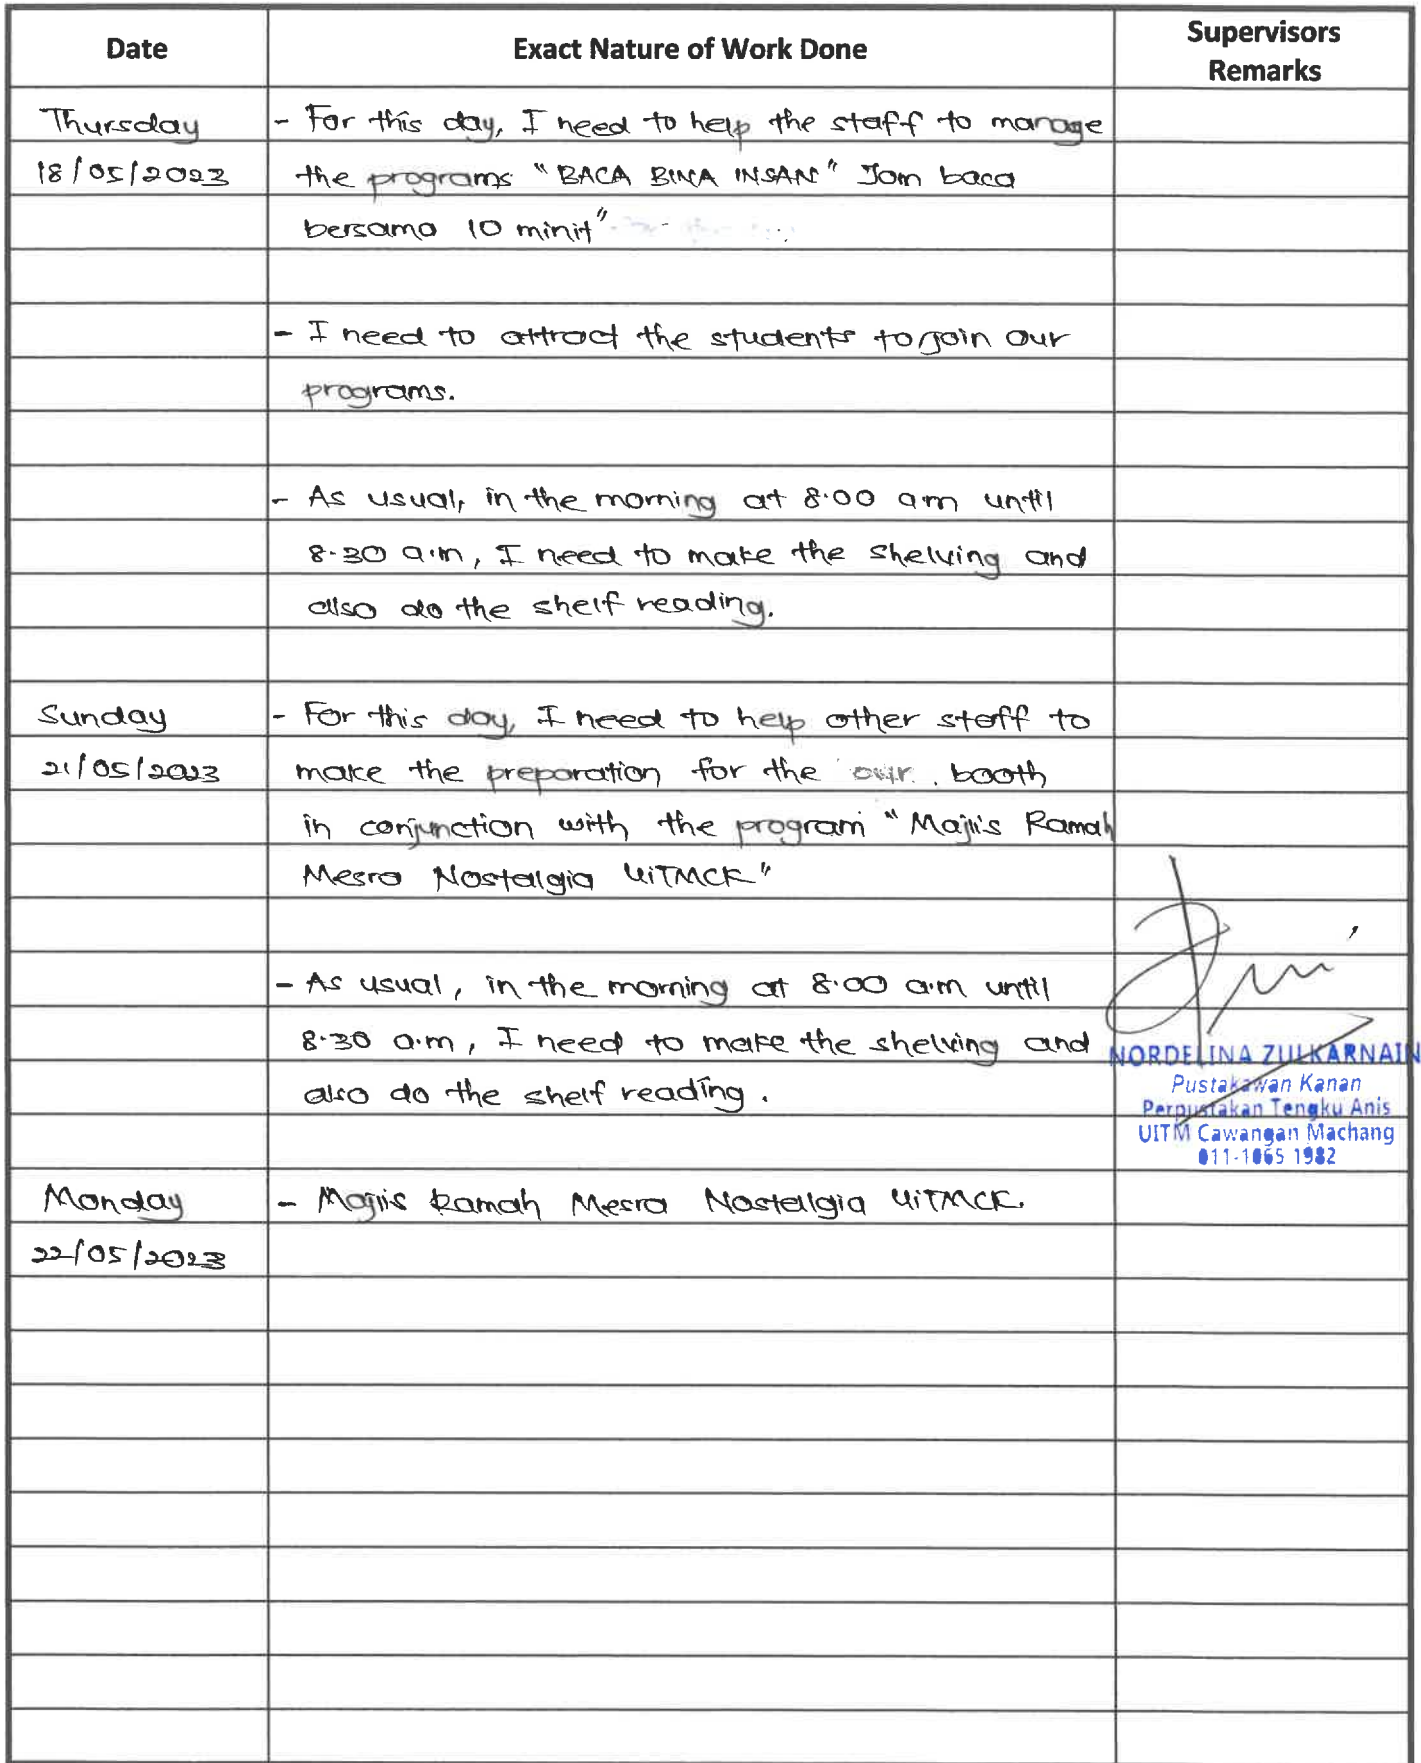 Date Exact Nature of Work Done Supervisors Remarks
Thursday - For this day, I need to help the staff to manage
18/05/2023 the programs "BACA BINA INSAN" Jom baca
bersama 10 minit"
- I need to attract the students to join our
programs.
- As usual, in the morning at 8.00 am until
8.30 a.m, I need to make the shelving and
also do the shelf reading.
Sunday - For this day, I need to help other staff to
21/05/2023 make the preparation for the our booth
in conjunction with the program "Majlis Ramah
Mesra Nostalgia UiTMCK"
- As usual, in the morning at 8.00 a.m until
8.30 a.m, I need to make the shelving and
also do the shelf reading.
NORDELINA ZULKARNAIN
Pustakawan Kanan
Perpustakan Tengku Anis
UITM Cawangan Machang
011-1065 1982
Monday - Majlis Ramah Mesra Nostalgia UiTMCK.
22/05/2023